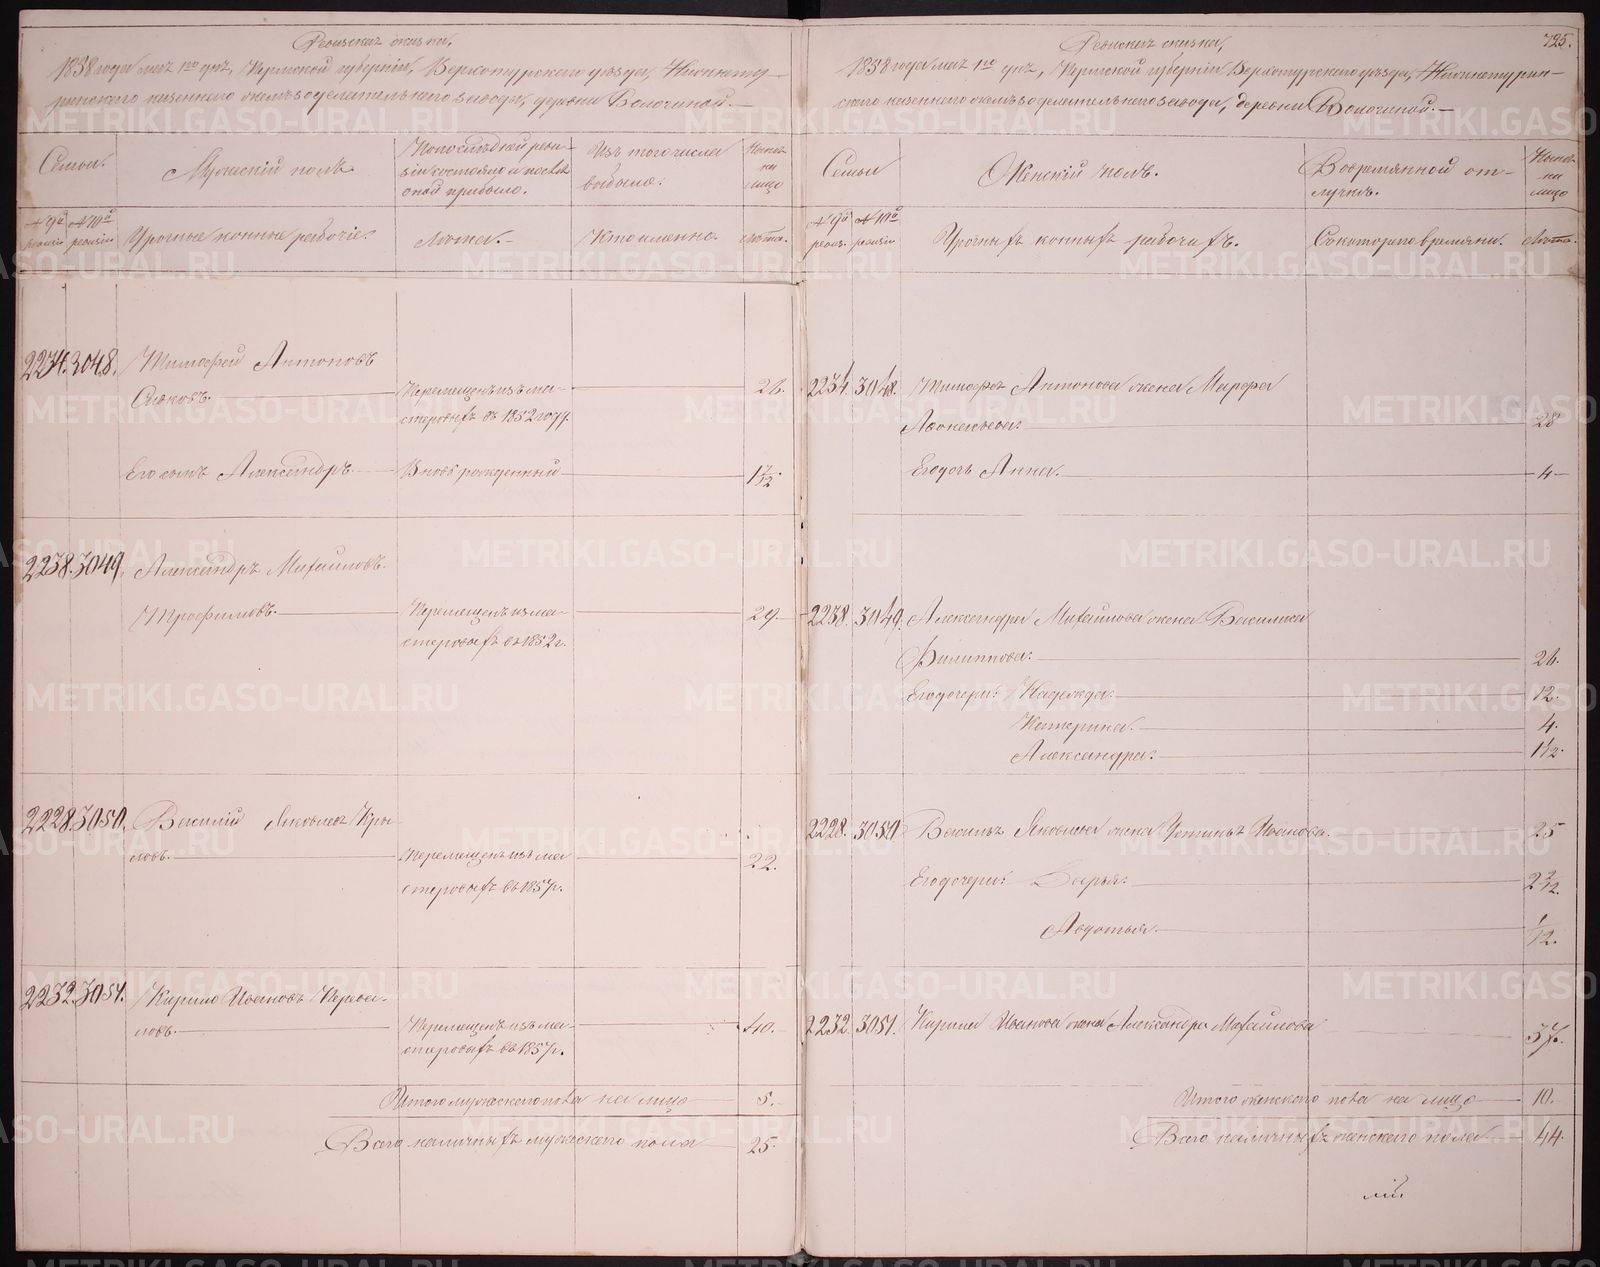 Ревизская сказка,
1858 года мая 1го дня, Пермской губерніи, Верхотурского уѣзда, Нижнету-
ринского казеннаго желѣзодѣлательнаго завода, деревни Волочиной.
Семьи.
Мужской полъ.
По послѣдней реви-
зіи состояло и послѣ
оной прибыло.
Изъ того числа
выбыло.
Нынѣ
на
лицо
№ 9й ревизіи
№ 10й ревизіи
Урочные конные рабочіе.
Лѣта.
Кто именно.
Лѣта.
2234. 3048. Тимофей Антоновъ
Перемещенъ изъ ма-
стеровыхъ въ 1852 году.
26.
Его сынъ Александръ. Вновь рожденный 1/12
2238. 3049. Александръ Михайловъ
Трофимовъ. Перемещенъ изъ ма-
стеровыхъ въ 1852 г.
29.
2228. 3050. Василій Яковлевъ Кры-
ловъ. Перемещенъ изъ ма
стеровыхъ въ 1857 г.
22.
2232. 3051. Кирило Ивановъ Перева-
ловъ. Перемещенъ изъ ма-
стеровыхъ въ 1857 г.
40.
Итого мужескаго пола на лицо 5.
Всего наличныхъ мужескаго пола 25.
725.
Ревизская сказка,
1858 года мая 1го дня, Пермской губерніи Верхотурского уѣзда, Нижнетурин-
ского казеннаго желѣзодѣлательнаго завода, деревни Волочиной.
Семьи
Женскій полъ.
Во временной от-
лучкѣ.
Нынѣ
на
лицо
№ 9й ревиз.
№ 10й ревизіи
Урочныхъ конныхъ рабочихъ.
Съ котораго времяни.
Лѣта.
2234. 3048. Тимофея Антонова жена Марфа
28
Его дочь Анна. 4
2238. 3049. Александра Михайлова жена Василиса
Филиппова. 26.
Его дочери: Надежда. 12.
Катерина. 4.
Александра. 1/12.
2228. 3050. Василья Яковлева жена Устинья Иванова. 25
Его дочери: Дарья. 2 2/12.
Авдотья. 1/12.
2232. 3051. Кирила Иванова жена Александра Михайлова
37.
Итого женскаго пола на лицо 10.
Всего наличныхъ женскаго пола 44.
METRIKI.GASO-URAL.RU